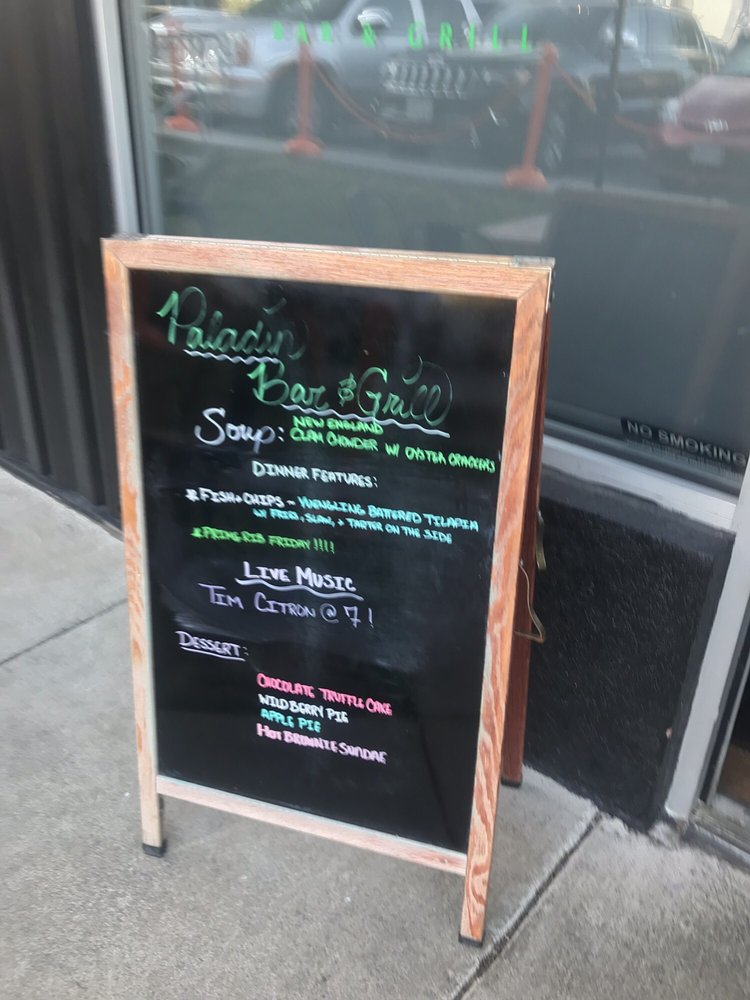 BAR & GRILL
Paladin
Bar & Grill
Soup: NEW ENGLAND
CLAM CHOWDER W/ OYSTER CRACKERS
DINNER FEATURES:
* FISH + CHIPS - YUENGLING BATTERED TILAPIA
W/ FRIES, SLAW, + TARTER ON THE SIDE
* PRIME RIB FRIDAY !!!!
LIVE MUSIC
TIM CITRON @ 7!
DESSERT:
CHOCOLATE TRUFFLE CAKE
WILD BERRY PIE
APPLE PIE
HOT BROWNIE SUNDAE
NO SMOKING